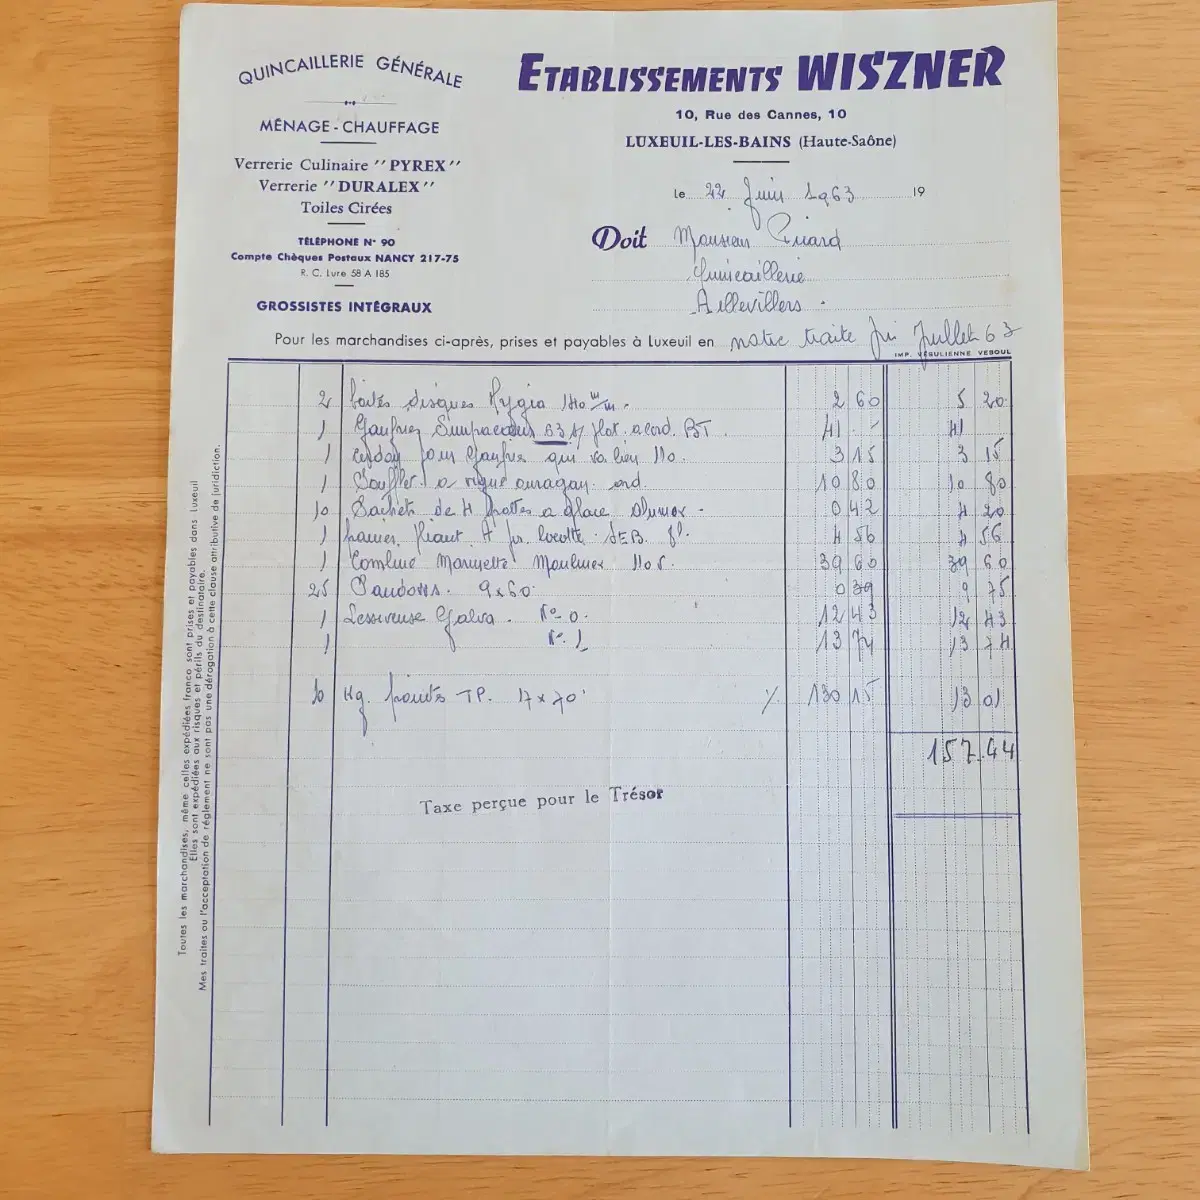 QUINCAILLERIE GÉNÉRALE
MÉNAGE - CHAUFFAGE
Verrerie Culinaire "PYREX"
Verrerie "DURALEX"
Toiles Cirées
TÉLÉPHONE N° 90
Compte Chèques Postaux NANCY 217-75
R. C. Lure 58 A 185
GROSSISTES INTÉGRAUX
ETABLISSEMENTS WISZNER
10, Rue des Cannes, 10
LUXEUIL-LES-BAINS (Haute-Saône)
le 22 Juin 1963 19
Doit Monsieur
Quincaillerie
Aillevillers.
Pour les marchandises ci-après, prises et payables à Luxeuil en notre traite fin Juillet 63
IMP. VÉGULIENNE VESOUL
2 boites disques Hygia 140 m/m. 2 60 5 20
1 Gaufrier BT. 41 - 41
1 pour Gaufrier 110. 3 15 3 15
1 Soufflet a ouragan. ord. 10 80 10 80
10 Sachets de 4 a glace 0 42 4 20
1 panier. SEB. 4 56 4 56
1 Combiné Moulinex 110 39 60 39 60
25 9x60 0 39 9 75
1 Lessiveuse Galva. N° 0. 12 43 12 43
1 N° 1 13 74 13 74
10 Kg. pointes TP. 17 x 70 % 130 15 13 01
157.44
Taxe perçue pour le Trésor
Toutes les marchandises, même celles expédiées franco sont prises et payables dans Luxeuil
Elles sont expédiées aux risques et périls du destinataire.
Mes traites ou l'acceptation de réglement ne sont pas une dérogation à cette clause attributive de juridiction.